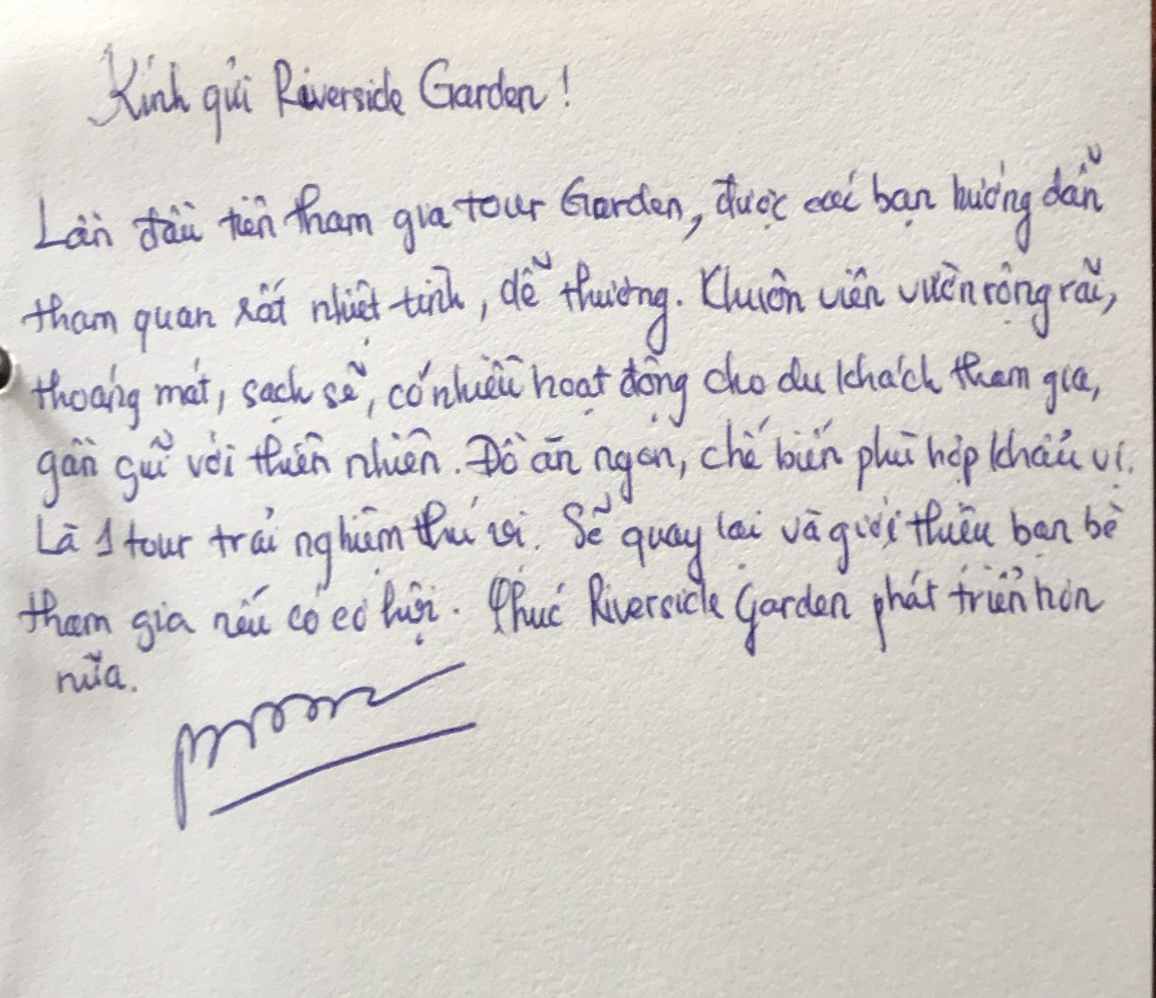 Kính gửi Riverside Garden !
Lần đầu tiên tham gia tour Garden, được các bạn hướng dẫn
tham quan rất nhiệt tình, dễ thương. Khuôn viên vườn rộng rãi,
thoáng mát, sạch sẽ, có nhiều hoạt động cho du khách tham gia,
gần gũi với thiên nhiên. Đồ ăn ngon, chế biến phù hợp khẩu vị.
Là 1 tour trải nghiệm thú vị. Sẽ quay lại và giới thiệu bạn bè
tham gia nếu có cơ hội. Chúc Riverside Garden phát triển hơn
nữa.